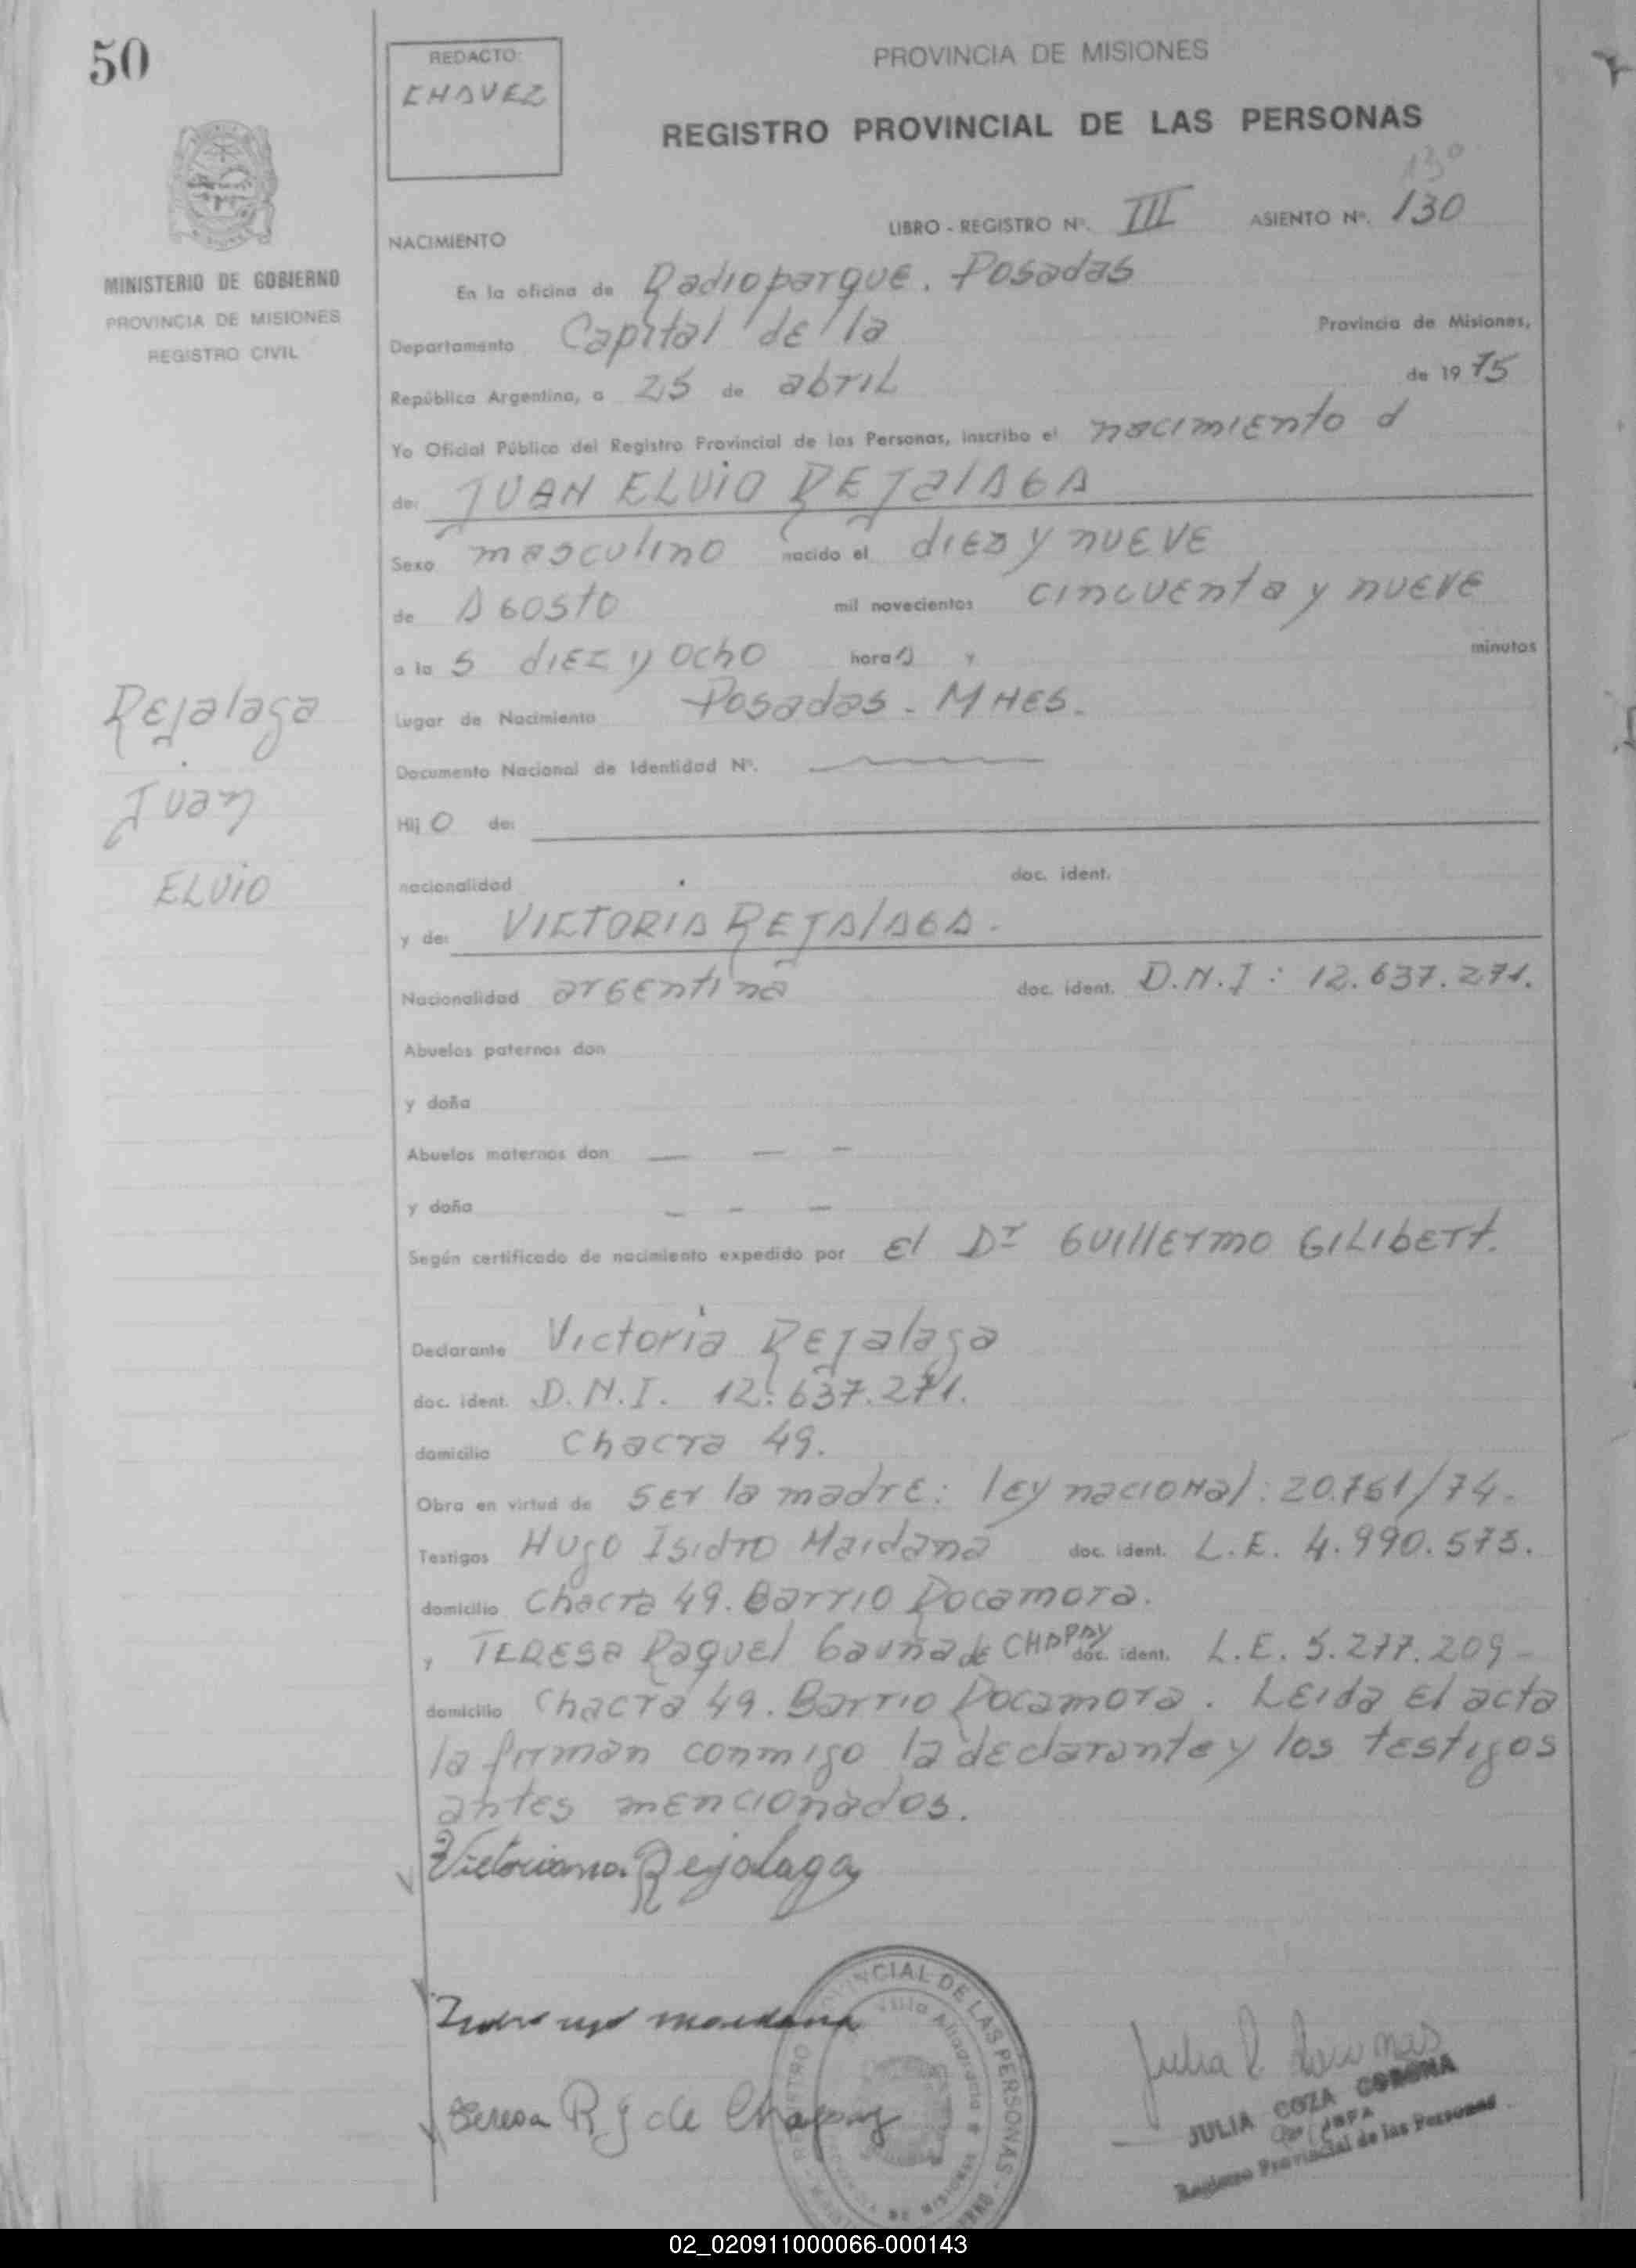 50
REDACTO:
CHAVEZ
PROVINCIA DE MISIONES
REGISTRO PROVINCIAL DE LAS PERSONAS
130
LIBRO - REGISTRO Nº. III ASIENTO Nº. 130
NACIMIENTO
MINISTERIO DE GOBIERNO
PROVINCIA DE MISIONES
REGISTRO CIVIL
En la oficina de Radioparque. Posadas
Departamento Capital de la Provincia de Misiones,
República Argentina, a 25 de abril de 1975
Yo Oficial Público del Registro Provincial de las Personas, inscribo el nacimiento d
de: JUAN ELVIO REJALAGA
Sexo masculino nacido el diez y nueve
de AGOSTO mil novecientos cincuenta y nueve
a la s diez y ocho hora s y minutos
Lugar de Nacimiento Posadas - MNES.
Documento Nacional de Identidad Nº.
Hij o de:
nacionalidad doc. ident.
y de: VICTORIA REJALAGA.
Nacionalidad argentina doc. ident. D.N.I: 12.637.271.
Abuelos paternos don
y doña
Abuelos maternos don — — —
y doña — — —
Según certificado de nacimiento expedido por El Dr Guillermo Gilibert.
Declarante Victoria Rejalaga
doc. ident. D.N.I. 12.637.271.
domicilio Chacra 49.
Obra en virtud de ser la madre: ley nacional: 20.751/74.
Testigos Hugo Isidro Maidana doc. ident. L.E. 4.990.573.
domicilio Chacra 49. Barrio Rocamora.
y Teresa Raquel Gauna de CHAPAY doc. ident. L.E. 5.277.209-
domicilio Chacra 49. Barrio Rocamora. Leida el acta
la firman conmigo la declarante y los testigos
antes mencionados.
Rejalaga
Juan
ELVIO
Victoriana Rejalaga
maidana
Teresa R G de Chapay
PROVINCIAL DE LAS PERSONAS
REGISTRO
DE MISIONES
JULIA COZA CORONA
JEFA
Registro Provincial de las Personas
02_020911000066-000143